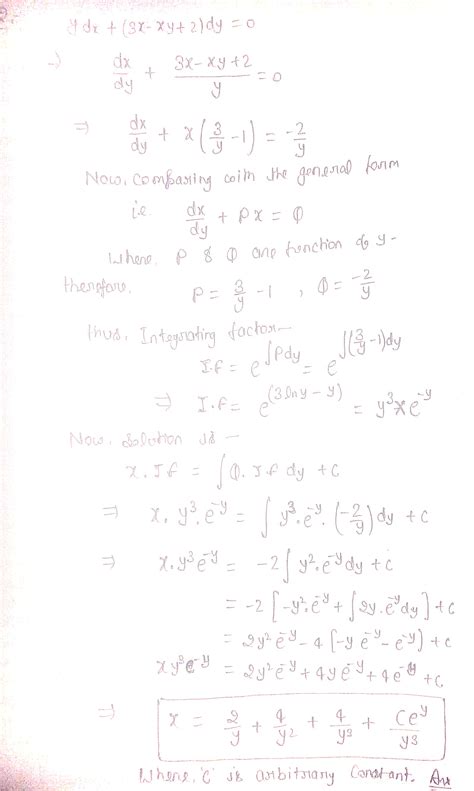 y dx + (3x - xy + 2) dy = 0
→ dx/dy + (3x - xy + 2)/y = 0
⇒ dx/dy + x(3/y - 1) = -2/y
Now, Comparing with the general form
i.e. dx/dy + Px = Q
Where, P & Q are function of y-
therefore, P = 3/y - 1 , Q = -2/y
thus, Integrating factor-
I.f = e^∫Pdy = e^∫(3/y - 1)dy
⇒ I.f = e^(3 ln y - y) = y³ × e^-y
Now, Solution is -
x. If = ∫Q. If dy + C
⇒ x. y³. e^-y = ∫ y³. e^-y. (-2/y) dy + C
⇒ x. y³ e^-y = -2∫ y². e^-y dy + C
= -2 [-y². e^-y + ∫2y. e^-y dy] + C
= 2y² e^-y - 4 [-y e^-y - e^-y] + C
x y³ e^-y = 2y² e^-y + 4y e^-y + 4 e^-y + C
⇒ x = 2/y + 4/y² + 4/y³ + Ce^y/y³
Where, 'C' is arbitrary Constant. Ans